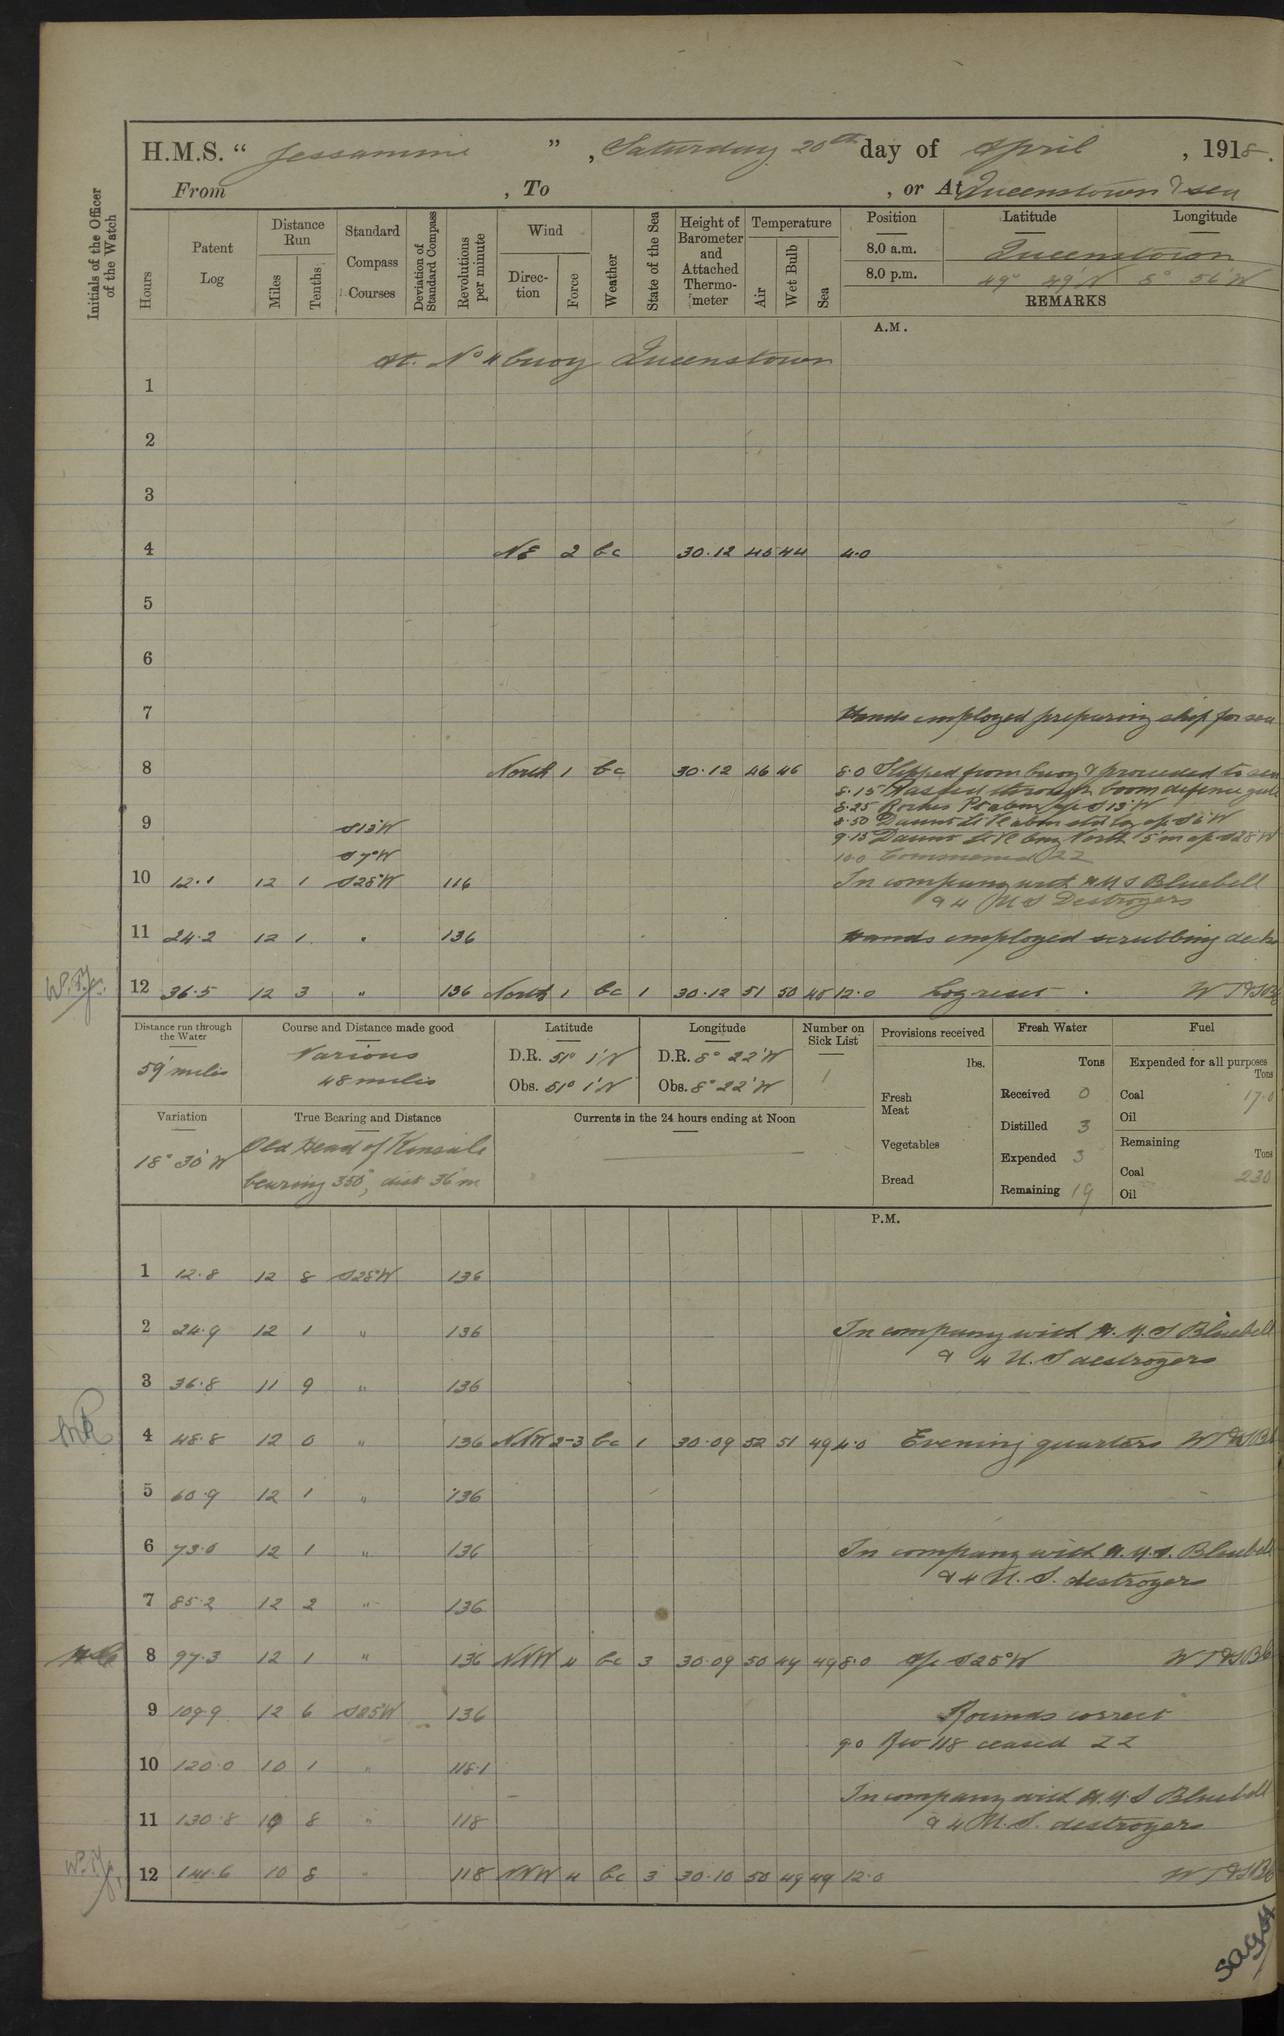 H.M.S. “ Jessamine ” , Saturday 20th day of April , 1918.
From , To , or At Queenstown & sea
Initials of the Officer of the Watch
Hours
Patent Log
Distance Run
Miles
Tenths
Standard Compass Courses
Deviation of Standard Compass
Revolutions per minute
Wind
Direction
Force
Weather
State of the Sea
Height of Barometer and Attached Thermometer
Temperature
Air
Wet Bulb
Sea
Position Latitude Longitude
8.0 a.m. Queenstown
8.0 p.m. 49° 49' N 8° 56' W
REMARKS
A.M.
At No 4 buoy Queenstown
1
2
3
4 NE 2 bc 30.12 45 44 4.0
5
6
7 Hands employed preparing ship for sea
8 North 1 bc 30.12 46 46 8.0 Slipped from buoy & proceeded to sea
8.15 Passed through boom defence gate
8.25 Roches Pt abm a/c S 13° W
9 S13°W 8.50 Daunt Lt Vl abm a/c S 7° W
S7°W 9.15 Daunt Lt Vl brg North 5'm a/c S 28° W
10.0 Commenced ZZ
10 12.1 12 1 S28°W 116 In company with H M S Bluebell
& 4 U S Destroyers
11 24.2 12 1 " 136 Hands employed scrubbing decks
12 36.5 12 3 " 136 North 1 bc 1 30.12 51 50 48 12.0 Log reset
Distance run through the Water
59 miles
Course and Distance made good
Various
48 miles
Latitude
D.R. 51° 1' N
Obs. 51° 1' N
Longitude
D.R. 8° 22' W
Obs. 8° 22' W
Number on Sick List
1
Provisions received
lbs.
Fresh Meat
Vegetables
Bread
Fresh Water
Tons
Received 0
Distilled 3
Expended 3
Remaining 19
Fuel
Expended for all purposes
Tons
Coal 17.0
Oil
Remaining
Tons
Coal 230
Oil
Variation
18° 30' W
True Bearing and Distance
Old Head of Kinsale
bearing 350°, dist 36'm
Currents in the 24 hours ending at Noon
P.M.
1 12.8 12 8 S28°W 136
2 24.9 12 1 " 136 In company with H. M. S Bluebell
& 4 U. S destroyers
3 36.8 11 9 " 136
4 48.8 12 0 " 136 NNW 2-3 bc 1 30.09 52 51 49 4.0 Evening quarters
5 60.9 12 1 " 136
6 73.0 12 1 " 136 In company with H. M. S. Bluebell
& 4 U. S. destroyers
7 85.2 12 2 " 136
8 97.3 12 1 " 136 NNW 4 bc 3 30.09 50 49 49 8.0 a/c S25°W
9 109.9 12 6 S25W 136 Rounds correct
9.0 Rev 118 ceased ZZ
10 120.0 10 1 " 118.1
In company with H. M. S Bluebell
11 130.8 10 8 " 118 & 4 U. S. destroyers
12 141.6 10 8 " 118 NNW 4 bc 3 30.10 50 49 49 12.0